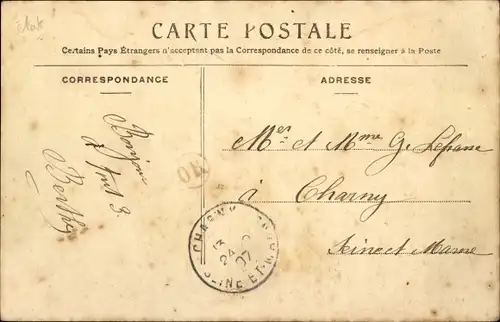 CARTE POSTALE
Certains Pays Étrangers n'acceptent pas la Correspondance de ce côté, se renseigner à la Poste
CORRESPONDANCE
ADRESSE
Bonjour
Berthe
Mer et Mme G. Lefasne
à Charny
Seine et Marne
OR
CHARNY
24
07
SEINE ET M